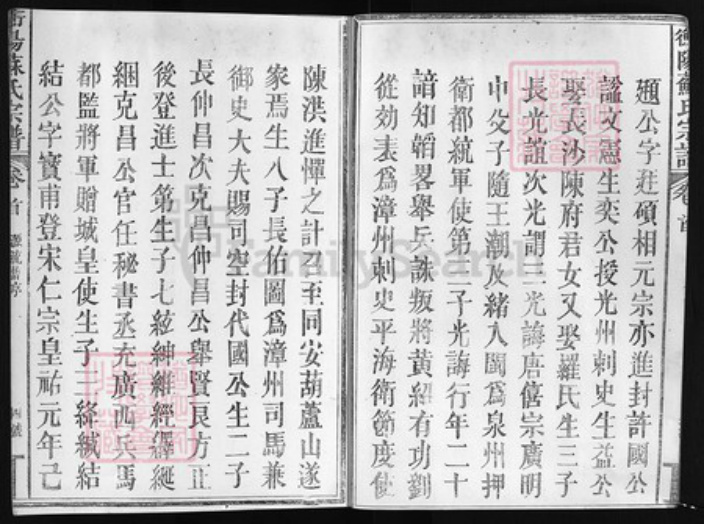 衡陽蘇氏宗譜 卷首
頲公字廷碩相元宗亦進封許國公
諡文憲生奕公授光州刺史生益公
娶長沙陳府君女又娶羅氏生三子
長光誼次光謂三光誨唐僖宗廣明
中父子隨王潮及緒入閩爲泉州押
衛都統軍使第三子光誨行年二十
諳知韜畧舉兵誅叛將黃紹有功劉
從効表爲漳州刺史平海衛節度使
陳洪進憚之計刀至同安葫蘆山遂
家焉生八子長佑圖爲漳州司馬兼
御史大夫賜司空封代國公生二子
長仲昌次克昌仲昌公舉賢良方正
後登進士第生子七紘紳緋經繹綖
綑克昌公官任秘書丞充廣西兵馬
都監將軍贈城皇使生子三絳緘結
結公字寶甫登宋仁宗皇祐元年己
衡陽蘇氏宗譜 卷首
四號
FamilySearch